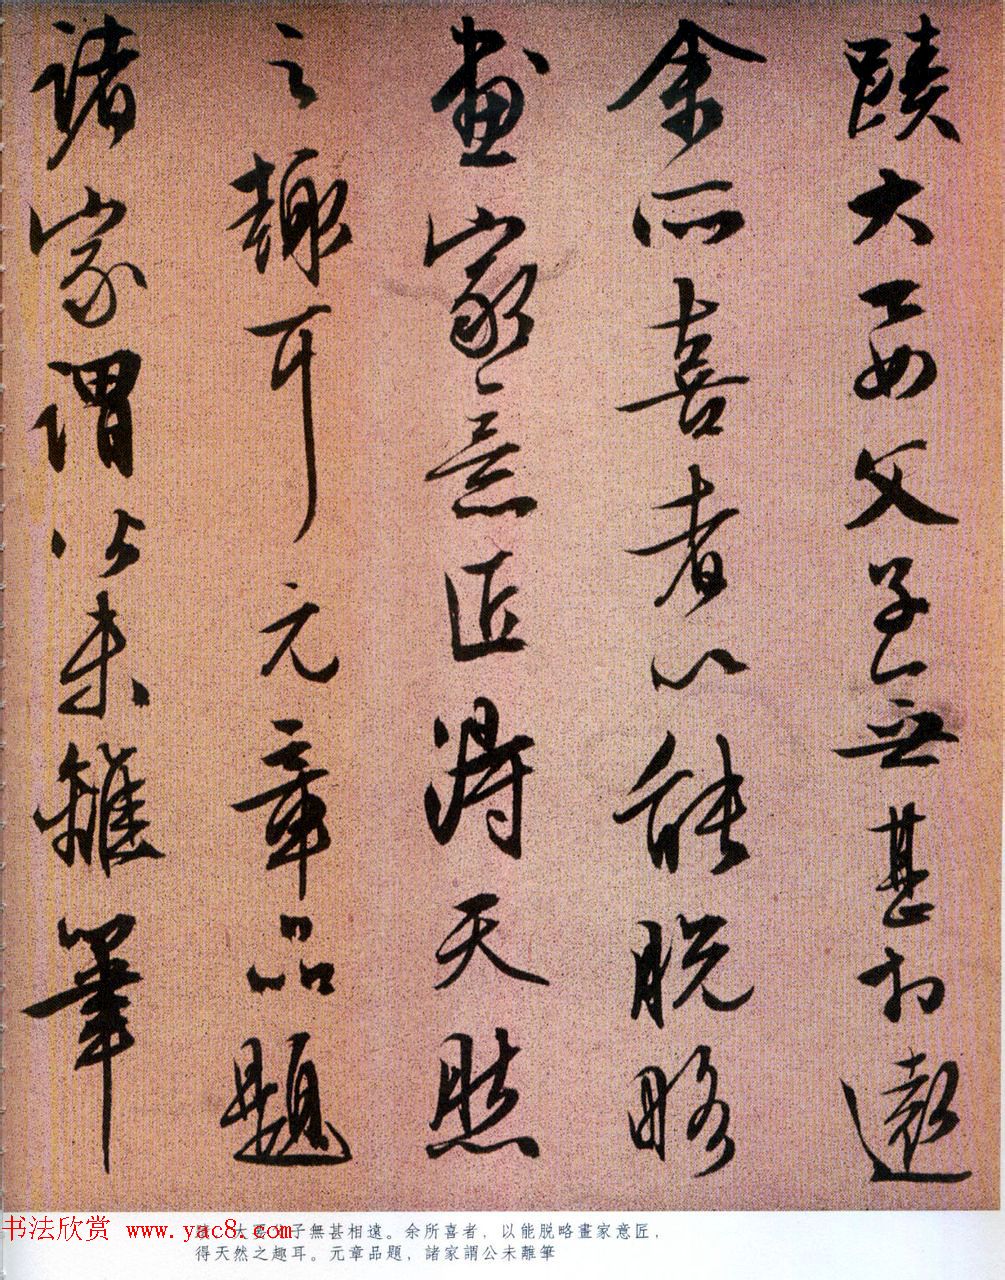 蹟大要父子無甚相遠
余所喜者以能脱略
畫家意匠得天然
之趣耳元章品題
諸家謂公未離筆
书法欣赏 www.yac8.com
蹟，大要父子無甚相遠。余所喜者，以能脱略畫家意匠，
得天然之趣耳。元章品題，諸家謂公未離筆